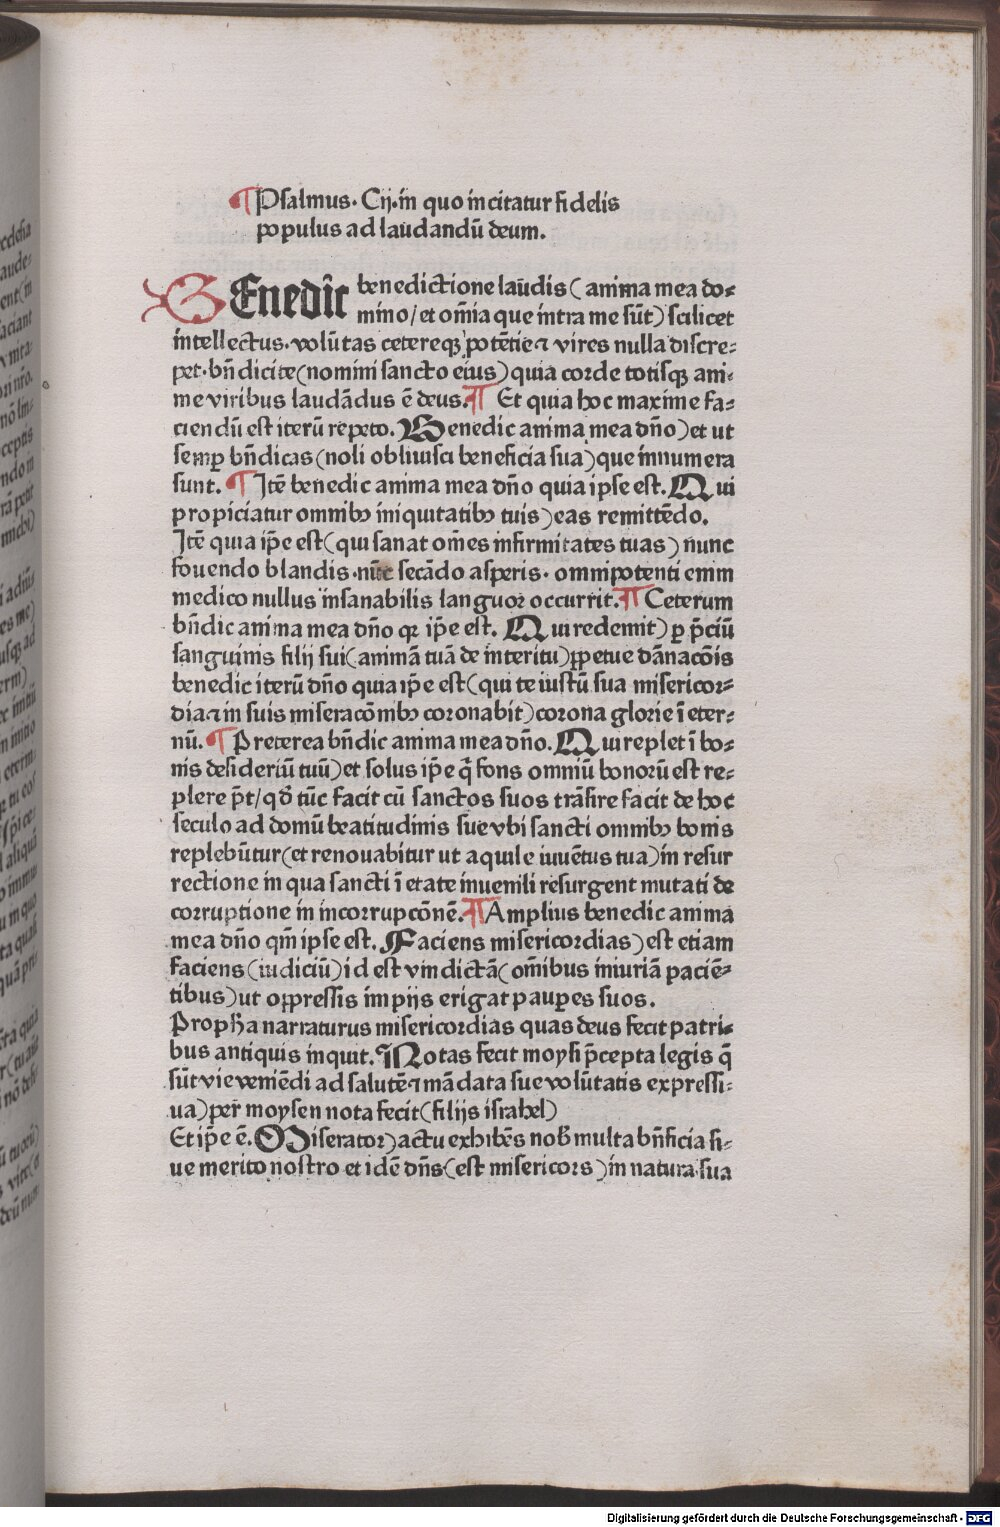 ¶ Psalmus. Cij. in quo incitatur fidelis
populus ad laudandū deum.
BEnedic benedictione laudis ( anima mea do⸗
mino / et om̄ia que intra me sūt ) scilicet
intellectus. volūtas cetereqꝫ potētie ⁊ vires nulla discre⸗
pet. bn̄dicite ( nomini sancto eius ) quia corde totisqꝫ ani⸗
me viribus laudādus ē deus. ¶ Et quia hoc maxime fa⸗
ciendū est iterū repeto. Benedic anima mea dn̄o ) et ut
semꝑ bn̄dicas ( noli obliuisci beneficia sua ) que innumera
sunt. ¶ Itē benedic anima mea dn̄o quia ipse est. Qui
propiciatur omnibꝫ iniquitatibꝫ tuis ) eas remittēdo.
Itē quia ip̄e est ( qui sanat om̄es infirmitates tuas ) nunc
fouendo blandis. nūc secādo asperis. omnipotenti enim
medico nullus insanabilis languor occurrit. ¶ Ceterum
bn̄dic anima mea dn̄o qꝛ ip̄e est. Qui redemit ) ꝑ p̄ciū
sanguinis filij sui ( animā tuā de interitu ) ꝑpetue dānacōis
benedic iterū dn̄o quia ip̄e est ( qui te iustū sua misericor⸗
dia ⁊ in suis miseracōnibꝫ coronabit ) corona glorie ī eter⸗
nū. ¶ Preterea bn̄dic anima mea dn̄o. Qui replet ī bo⸗
nis desideriū tuū ) et solus ip̄e q̄ fons omniū bonorū est re⸗
plere p̄t / qd̄ tūc facit cū sanctos suos trāsire facit de hoc
seculo ad domū beatitudinis sue vbi sancti omnibꝫ bonis
replebūtur ( et renouabitur ut aquile iuuētus tua ) in resur
rectione in qua sancti ī etate iuuenili resurgent mutati de
corruptione in incorrupcōnē. ¶ Amplius benedic anima
mea dn̄o qm̄ ipse est. Faciens misericordias ) est etiam
faciens ( iudiciū ) id est vindictā ( om̄ibus iniuriā paciē⸗
tibus ) ut oppressis impijs erigat pauꝑes suos.
Propħa narraturus misericordias quas deus fecit patri⸗
bus antiquis inquit. Notas fecit moysi p̄cepta legis q̄
sūt vie veniēdi ad salutē ⁊ mādata sue volūtatis expressi⸗
ua ) per moysen nota fecit ( filijs israhel )
Et ip̄e ē. Miserator ) actu exhibēs nob̄ multa bn̄ficia si⸗
ue merito nostro et idē dn̄s ( est misericors ) in natura sua
Digitalisierung gefördert durch die Deutsche Forschungsgemeinschaft - DFG